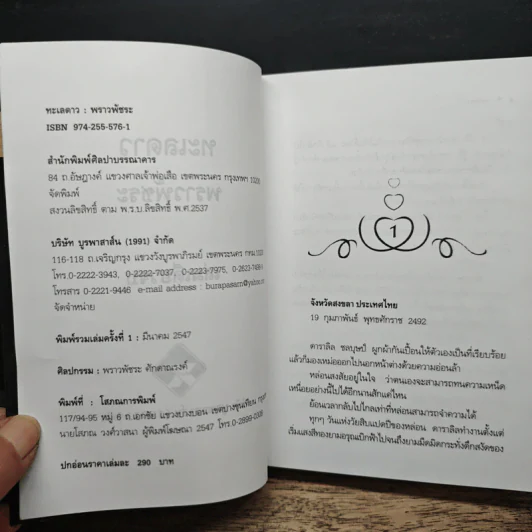 ทะเลดาว : พราวพัชระ
ISBN 974-255-576-1
สำนักพิมพ์ศิลปาบรรณาคาร
84 ถ.อัษฎางค์ แขวงศาลเจ้าพ่อเสือ เขตพระนคร กรุงเทพฯ 10200
จัดพิมพ์
สงวนลิขสิทธิ์ ตาม พ.ร.บ.ลิขสิทธิ์ พ.ศ.2537
บริษัท บูรพาสาส์น (1991) จำกัด
116-118 ถ.เจริญกรุง แขวงวังบูรพาภิรมย์ เขตพระนคร กทม.
โทร.0-2222-3943, 0-2222-7037, 0-2223-7975,
โทรสาร 0-2221-9446 e-mail address :
จัดจำหน่าย
พิมพ์รวมเล่มครั้งที่ 1 : มีนาคม 2547
ศิลปกรรม : พราวพัชระ ศักดาณรงค์
พิมพ์ที่ : โสภณการพิมพ์
117/94-95 หมู่ 6 ถ.เอกชัย แขวงบางบอน เขตบางขุนเทียน
นายโสภณ วงศ์วาสนา ผู้พิมพ์โฆษณา 2547 โทร.
ปกอ่อนราคาเล่มละ 290 บาท
1
จังหวัดสงขลา ประเทศไทย
19 กุมภาพันธ์ พุทธศักราช 2492
ดาราลิล ชลบุษป์ ผูกผ้ากันเปื้อนให้ตัวเองเป็นที่เรียบร้อย
แล้วก็มองเหม่อออกไปนอกหน้าต่างด้วยความอ่อนล้า
หล่อนสงสัยอยู่ในใจ ว่าตนเองจะสามารถทนความเหน็ด
เหนื่อยอย่างนี้ไปได้อีกนานสักแค่ไหน
ย้อนเวลากลับไปไกลเท่าที่หล่อนสามารถจำความได้
ทุกๆ วันแห่งวัยสิบแปดปีของหล่อน ดาราลิลทำงานตั้งแต่
เริ่มแสงสีทองยามอรุณเบิกฟ้าไปจนถึงยามมืดมิดกระทั่งดึกสงัดของ